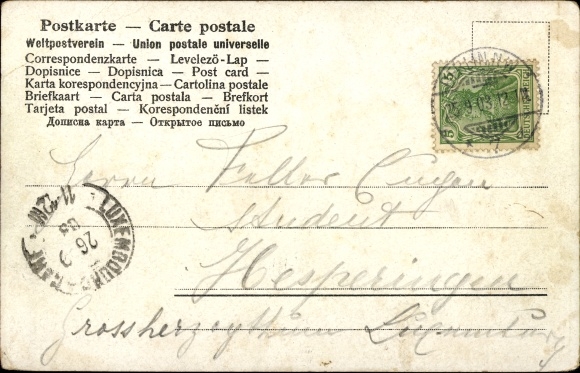 Postkarte — Carte postale
Weltpostverein — Union postale universelle
Correspondenzkarte — Levelezö-Lap —
Dopisnice — Dopisnica — Post card —
Karta korespondencyjna — Cartolina postale
Briefkaart — Carta postala — Brefkort
Tarjeta postal — Korespondenční listek
Дописна карта — Открытое письмо
5
5
LUXEMBOURG
26
03
11-12
Herrn Feller Eugen
Student
Hesperingen
Grossherzogthum Luxemburg